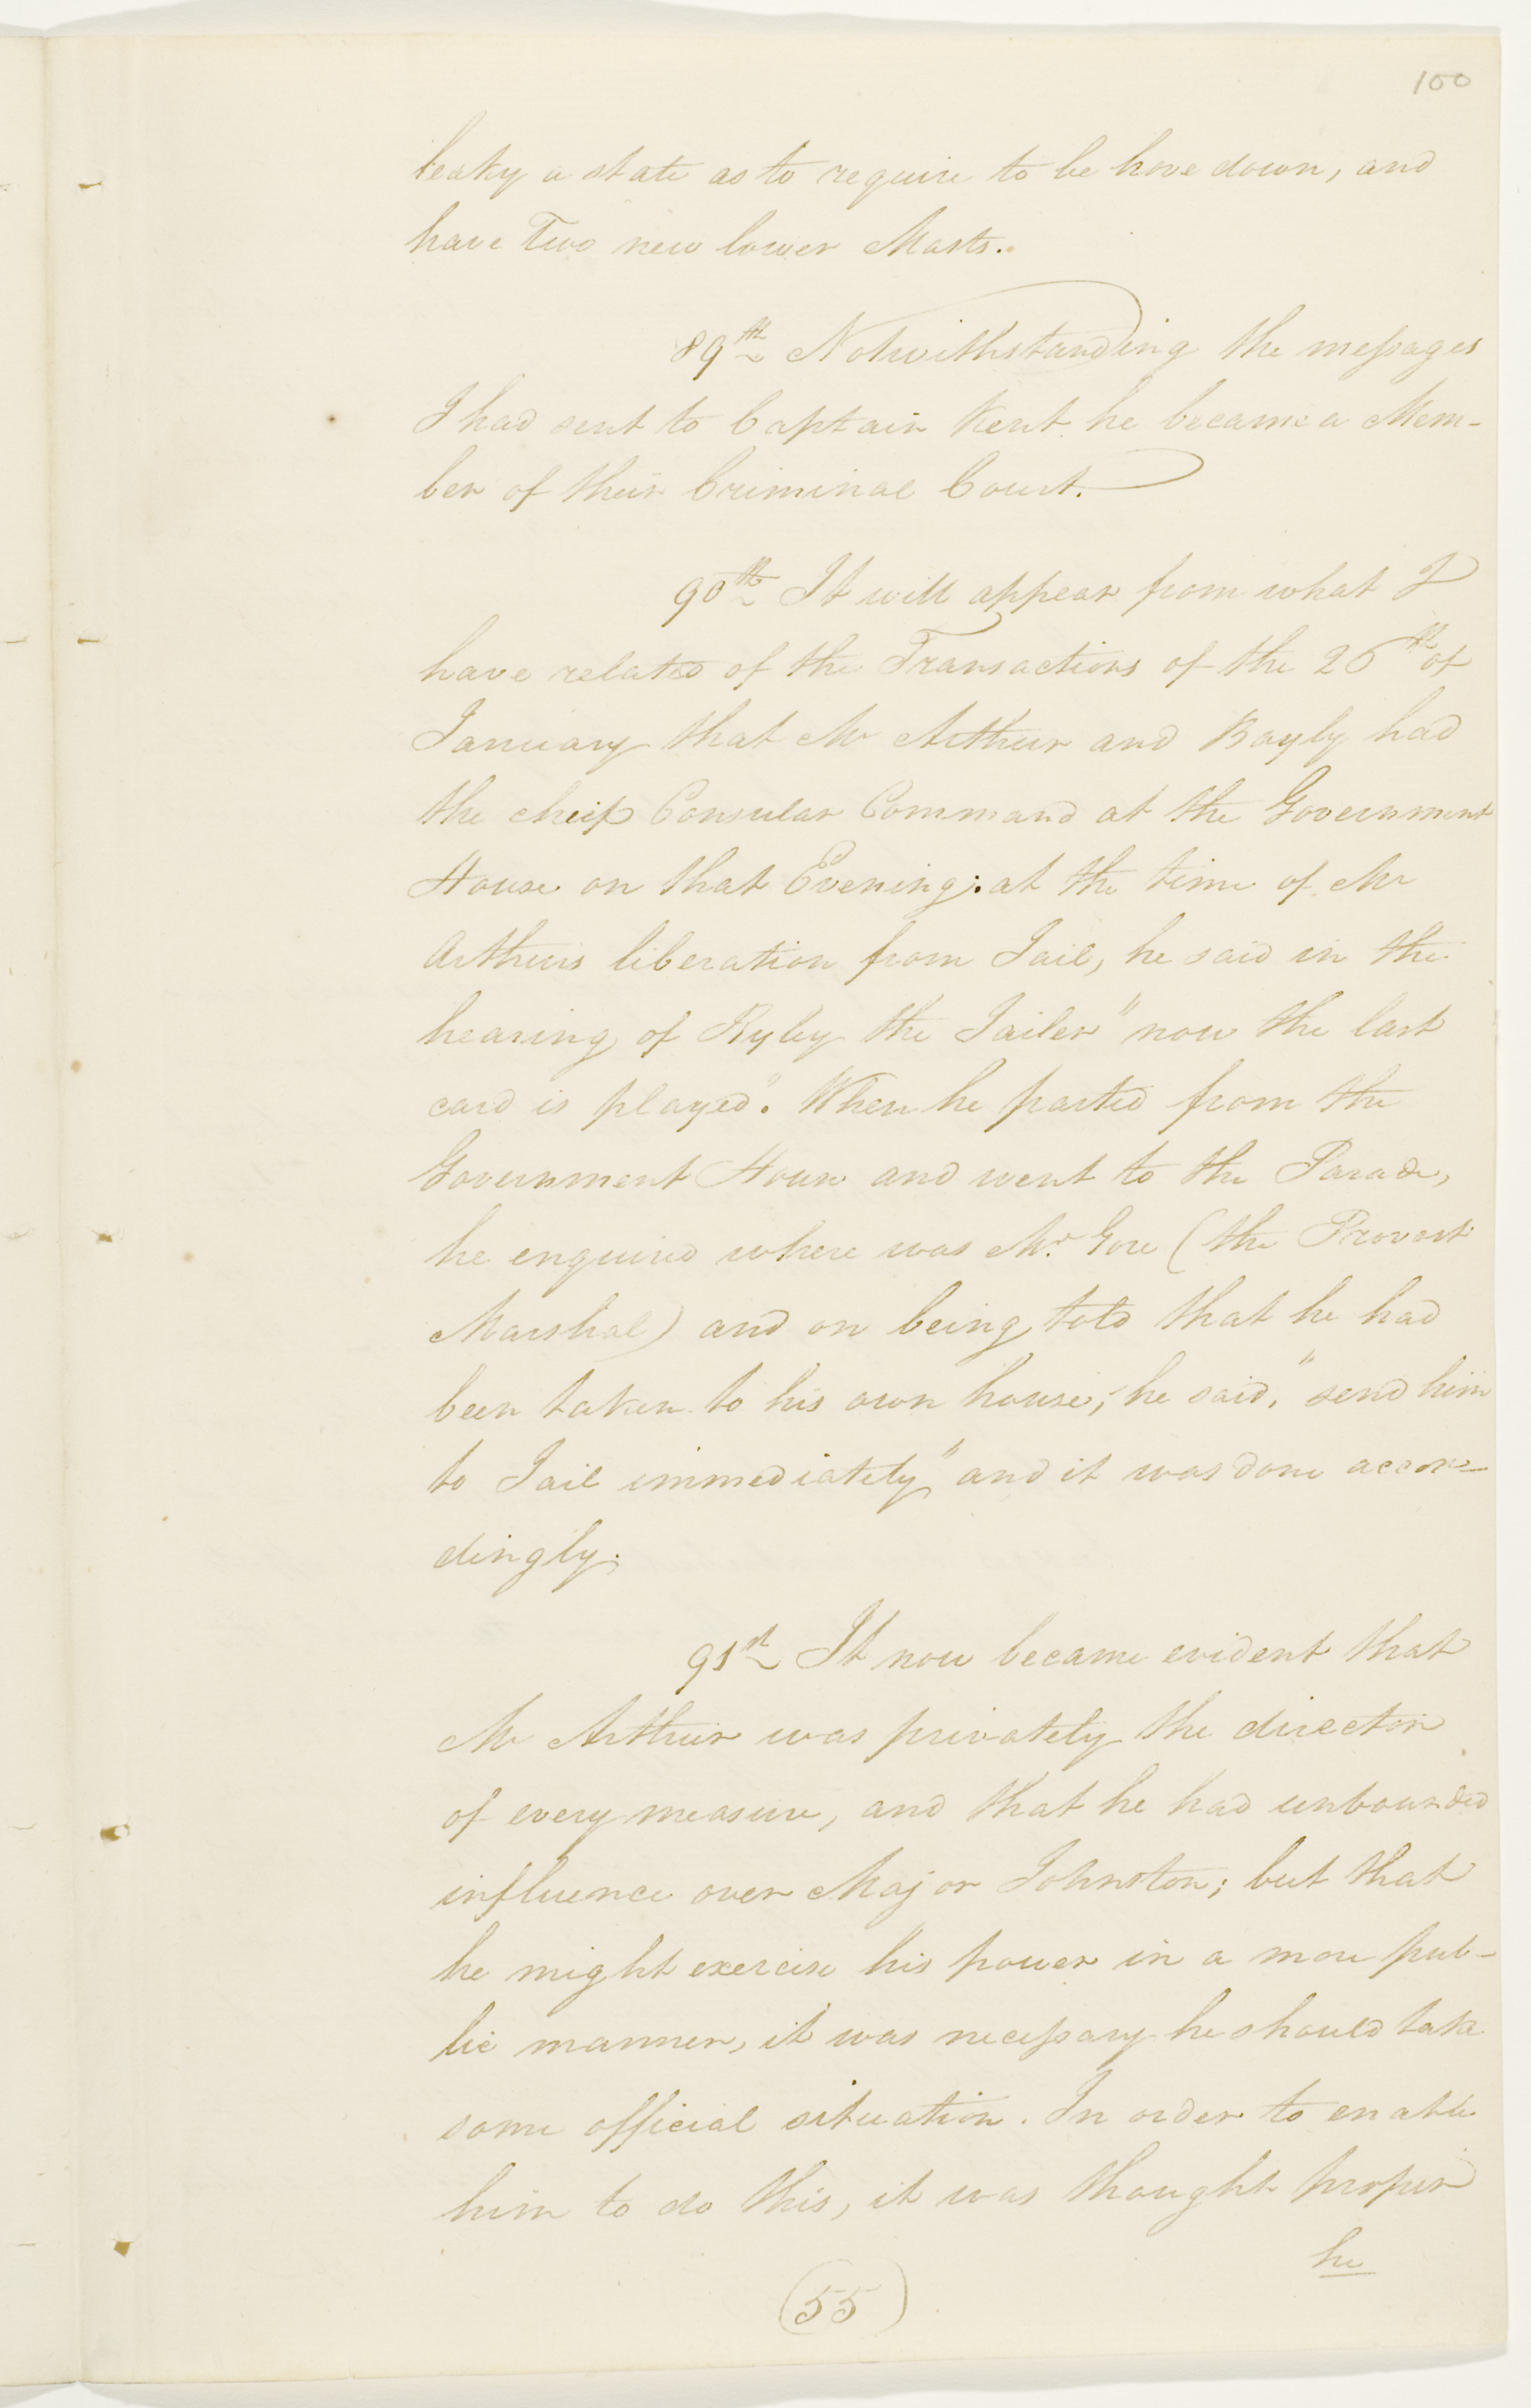 100
leaky a state as to require to be hove down, and
have Two new lower Masts.
89th Notwithstanding the messages
I had sent to Captain Kent he became a Mem-
ber of their Criminal Court.
90th It will appear from what I
have related of the Transactions of the 26th of
January that Mc Arthur and Bayly had
the cheif Consular Command at the Government
House on that Evening; at the time of Mc
Arthurs liberation from Jail, he said in the
hearing of Ryley the Jailer "now the last
card is played". When he parted from the
Government House and went to the Parade,
he enquired where was Mr. Gore (the Provost
Marshal) and on being told that he had
been taken to his own house; he said, "send him
to Jail immediately" and it was done accor-
dingly.
91st It now became evident that
Mc Arthur was privately the director
of every measure, and that he had unbounded
influence over Major Johnston; but that
he might exercise his power in a more pub-
lic manner, it was necessary he should take
some official situation. In order to enable
him to do this, it was thought proper
he
(55)